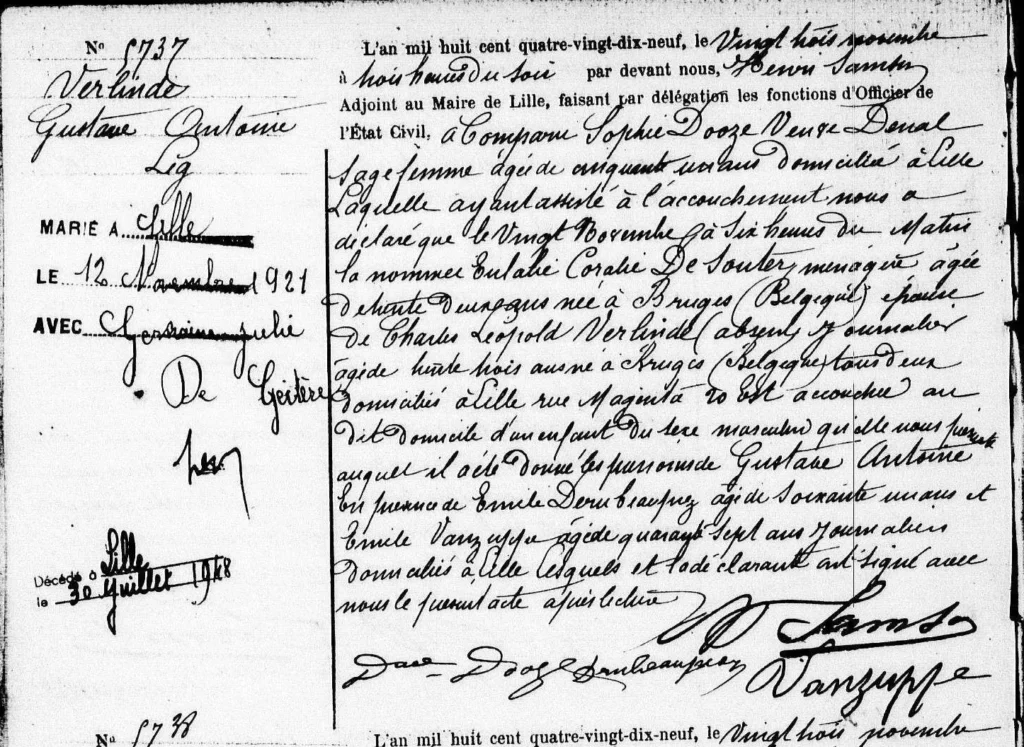 No 5737
Verlinde
Gustave Antoine
Lég
MARIÉ A Lille
LE 12 Novembre 1921
AVEC Germaine Julie
De
Décédé à Lille
le 30 Juillet 1948
L'an mil huit cent quatre-vingt-dix-neuf, le Vingt trois novembre
à trois heures du soir par devant nous, Henri Samson
Adjoint au Maire de Lille, faisant par délégation les fonctions d'Officier de
l'État Civil, a Comparu Sophie Dooze Veuve
sage femme âgée de cinquante un ans domiciliée à Lille
Laquelle ayant assisté à l'accouchement nous a
déclaré que le Vingt Novembre à Six heures du Matin
la nommée Eulalie Coralie De Souter, ménagère âgée
de trente deux ans née à Bruges (Belgique) épouse
de Charles Léopold Verlinde (absent) journalier
âgé de trente trois ans né à Bruges (Belgique) tous deux
domiciliés à Lille rue Magenta 20 Est accouchée au
dit domicile d'un enfant du sexe masculin qu'elle nous présente
auquel il a été donné les prénoms de Gustave Antoine
En présence de Emile âgé de soixante un ans et
Emile Vanzuppe âgé de quarante sept ans journaliers
domiciliés à Lille lesquels et la déclarante ont signé avec
nous le présent acte après lecture
Samson
Dooze
Vanzuppe
No 5738
L'an mil huit cent quatre-vingt-dix-neuf, le Vingt trois novembre